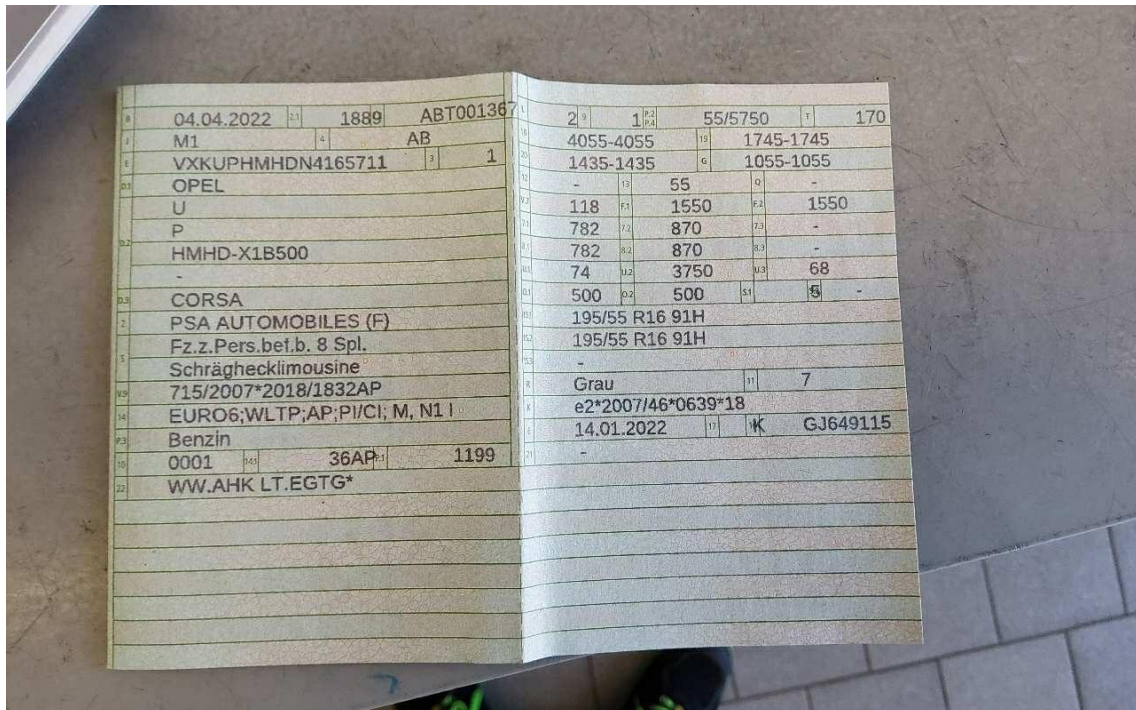 B 04.04.2022 2.1 1889 ABT001367
J M1 4 AB
E VXKUPHMHDN4165711 3 1
D.1 OPEL
U
D.2 P
HMHD-X1B500
-
D.3 CORSA
2 PSA AUTOMOBILES (F)
5 Fz.z.Pers.bef.b. 8 Spl.
Schräghecklimousine
V.9 715/2007*2018/1832AP
14 EURO6;WLTP;AP;PI/CI; M, N1 I
P.3 Benzin
10 0001 14.1 36AP P.1 1199
22 WW.AHK LT.EGTG*
L 2 9 1 P.2 P.4 55/5750 T 170
18 4055-4055 19 1745-1745
20 1435-1435 G 1055-1055
12 - 13 55 Q -
V.7 118 F.1 1550 F.2 1550
7.1 782 7.2 870 7.3 -
8.1 782 8.2 870 8.3 -
U.1 74 U.2 3750 U.3 68
O.1 500 O.2 500 S.1 5 -
15.1 195/55 R16 91H
15.2 195/55 R16 91H
15.3 -
R Grau 11 7
K e2*2007/46*0639*18
6 14.01.2022 17 K GJ649115
21 -